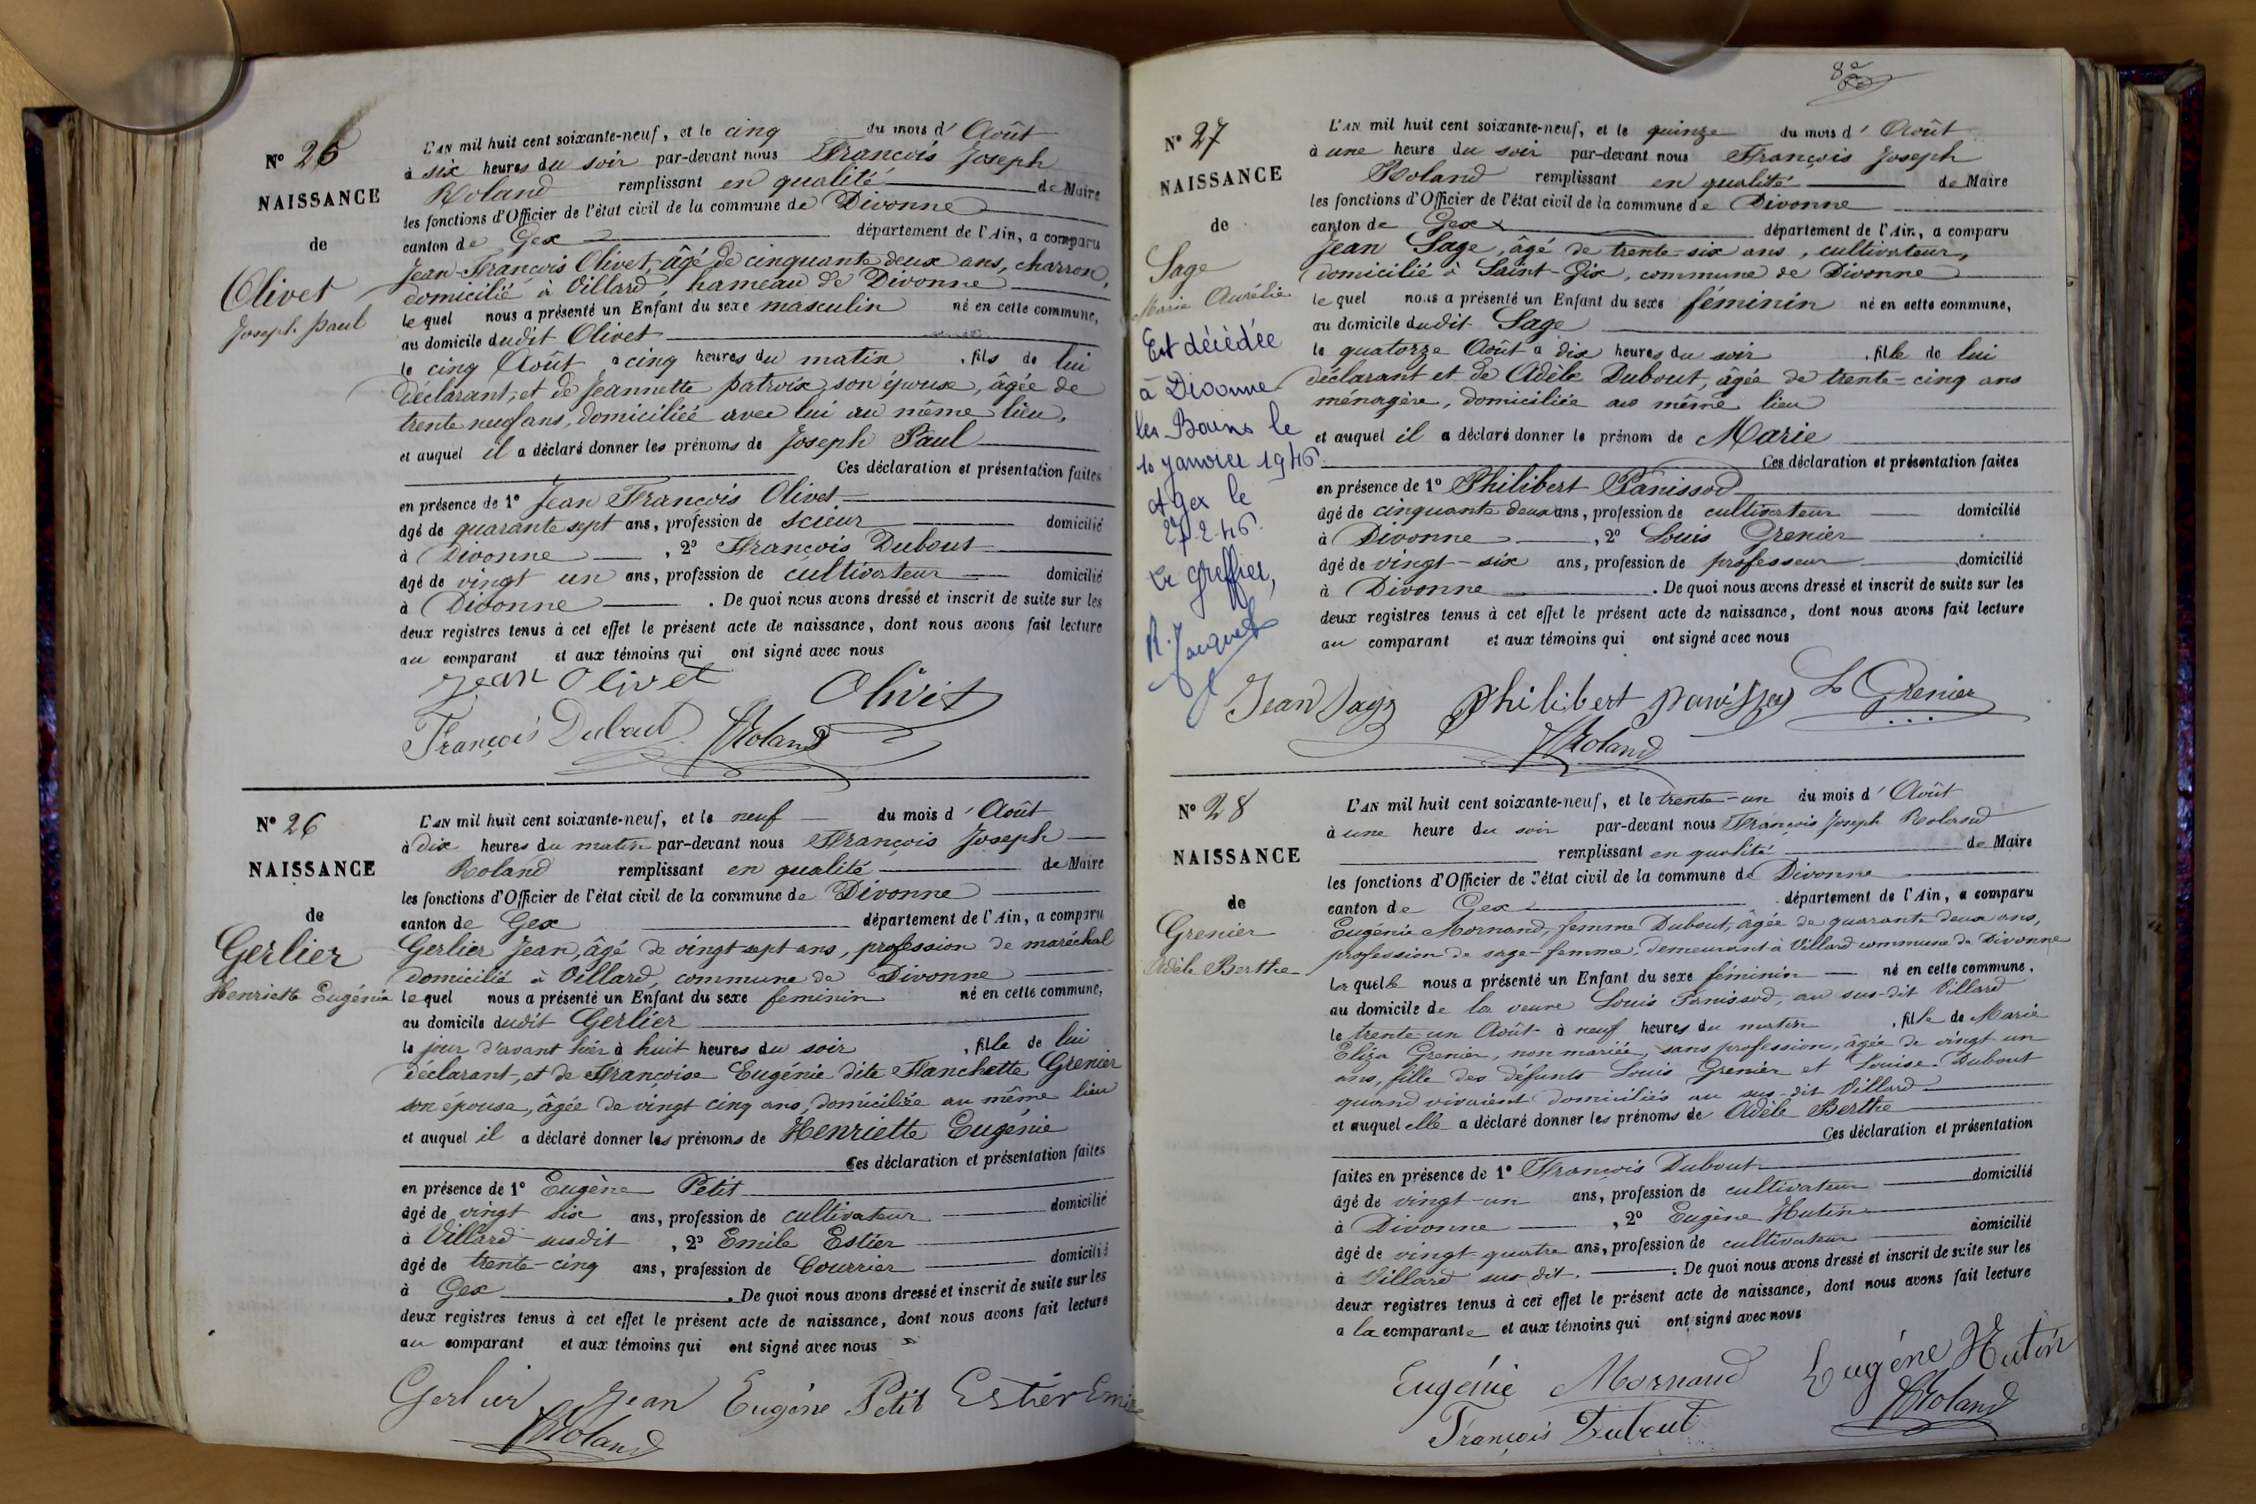 N° 26
NAISSANCE
de
Olivet
Joseph Paul
L'AN mil huit cent soixante-neuf, et le cinq du mois d' Août
à six heures du soir par-devant nous François Joseph
Roland remplissant en qualité de Maire
les fonctions d'Officier de l'état civil de la commune de Divonne
canton de Gex département de l'Ain, a comparu
Jean-François Olivet, âgé de cinquante deux ans, charron,
domicilié à Villard, hameau de Divonne
lequel nous a présenté un Enfant du sexe masculin né en cette commune,
au domicile dudit Olivet
le cinq Août à cinq heures du matin, fils de lui
déclarant, et de Jeannette Patroix, son épouse, âgée de
trente neuf ans, domiciliée avec lui au même lieu,
et auquel il a déclaré donner les prénoms de Joseph Paul
Ces déclaration et présentation faites
en présence de 1° Jean François Olivet
âgé de quarante sept ans, profession de scieur domicilié
à Divonne, 2° François Dubout
âgé de vingt un ans, profession de cultivateur domicilié
à Divonne. De quoi nous avons dressé et inscrit de suite sur les
deux registres tenus à cet effet le présent acte de naissance, dont nous avons fait lecture
au comparant et aux témoins qui ont signé avec nous
Jean Olivet Olivit
François Dubout Roland
N° 26
NAISSANCE
de
Gerlier
Henriette Eugénie
L'AN mil huit cent soixante-neuf, et le neuf du mois d' Août
à dix heures du matin par-devant nous François Joseph
Roland remplissant en qualité de Maire
les fonctions d'Officier de l'état civil de la commune de Divonne
canton de Gex département de l'Ain, a comparu
Gerlier Jean, âgé de vingt sept ans, profession de maréchal
domicilié à Villard, commune de Divonne
lequel nous a présenté un Enfant du sexe feminin né en cette commune,
au domicile dudit Gerlier
le jour d'avant hier à huit heures du soir, fille de lui
déclarant, et de Françoise Eugénie dite Fanchette Grenier
son épouse, âgée de vingt cinq ans, domiciliée au même lieu
et auquel il a déclaré donner les prénoms de Henriette Eugénie
Ces déclaration et présentation faites
en présence de 1° Eugène Petit
âgé de vingt six ans, profession de cultivateur domicilié
à Villard susdit, 2° Emile Estier
âgé de trente-cinq ans, profession de Courrier domicilié
à Gex. De quoi nous avons dressé et inscrit de suite sur les
deux registres tenus à cet effet le présent acte de naissance, dont nous avons fait lecture
au comparant et aux témoins qui ont signé avec nous
Gerlier Jean Eugène Petit Estier Emile
Roland
N° 27
NAISSANCE
de
Sage
Marie Aurélie
Est décédée
à Divonne
les Bains le
10 janvier 1946.
A Gex le
27.2.46.
Le Greffier,
R. Jacquet
L'AN mil huit cent soixante-neuf, et le quinze du mois d' Août
à une heure du soir par-devant nous François Joseph
Roland remplissant en qualité de Maire
les fonctions d'Officier de l'état civil de la commune de Divonne
canton de Gex département de l'Ain, a comparu
Jean Sage, âgé de trente-six ans, cultivateur,
domicilié à Saint-Gix, commune de Divonne
lequel nous a présenté un Enfant du sexe féminin né en cette commune,
au domicile dudit Sage
le quatorze Août à dix heures du soir, fille de lui
déclarant et de Adèle Dubout, âgée de trente-cinq ans
ménagère, domiciliée au même lieu
et auquel il a déclaré donner le prénom de Marie
Ces déclaration et présentation faites
en présence de 1° Philibert Panissod
âgé de cinquante deux ans, profession de cultivateur domicilié
à Divonne, 2° Louis Grenier
âgé de vingt-six ans, profession de professeur domicilié
à Divonne. De quoi nous avons dressé et inscrit de suite sur les
deux registres tenus à cet effet le présent acte de naissance, dont nous avons fait lecture
au comparant et aux témoins qui ont signé avec nous
Jean Sage Philibert Panissod Ls Grenier
Roland
N° 28
NAISSANCE
de
Grenier
Adèle Berthe
L'AN mil huit cent soixante-neuf, et le trente-un du mois d' Août
à une heure du soir par-devant nous François Joseph Roland
remplissant en qualité de Maire
les fonctions d'Officier de l'état civil de la commune de Divonne
canton de Gex département de l'Ain, a comparu
Eugénie Mornand, femme Dubout, âgée de quarante deux ans,
profession de sage-femme, demeurant à Villard commune de Divonne
laquelle nous a présenté un Enfant du sexe féminin né en cette commune,
au domicile de la veuve Louis Panissod, au sus-dit Villard
le trente-un Août à neuf heures du matin, fille de Marie
Eliza Grenier, non mariée, sans profession, âgée de vingt un
ans, fille des défunts Louis Grenier et Louise Dubout
quand vivaient domiciliés au sus-dit Villard
et auquel elle a déclaré donner les prénoms de Adèle Berthe
Ces déclaration et présentation
faites en présence de 1° François Dubout
âgé de vingt-un ans, profession de cultivateur domicilié
à Divonne, 2° Eugène Hutin
âgé de vingt quatre ans, profession de cultivateur domicilié
à Villard sus-dit. De quoi nous avons dressé et inscrit de suite sur les
deux registres tenus à cet effet le présent acte de naissance, dont nous avons fait lecture
a la comparante et aux témoins qui ont signé avec nous
Eugénie Mornand Eugéne Hutin
François Dubout Roland